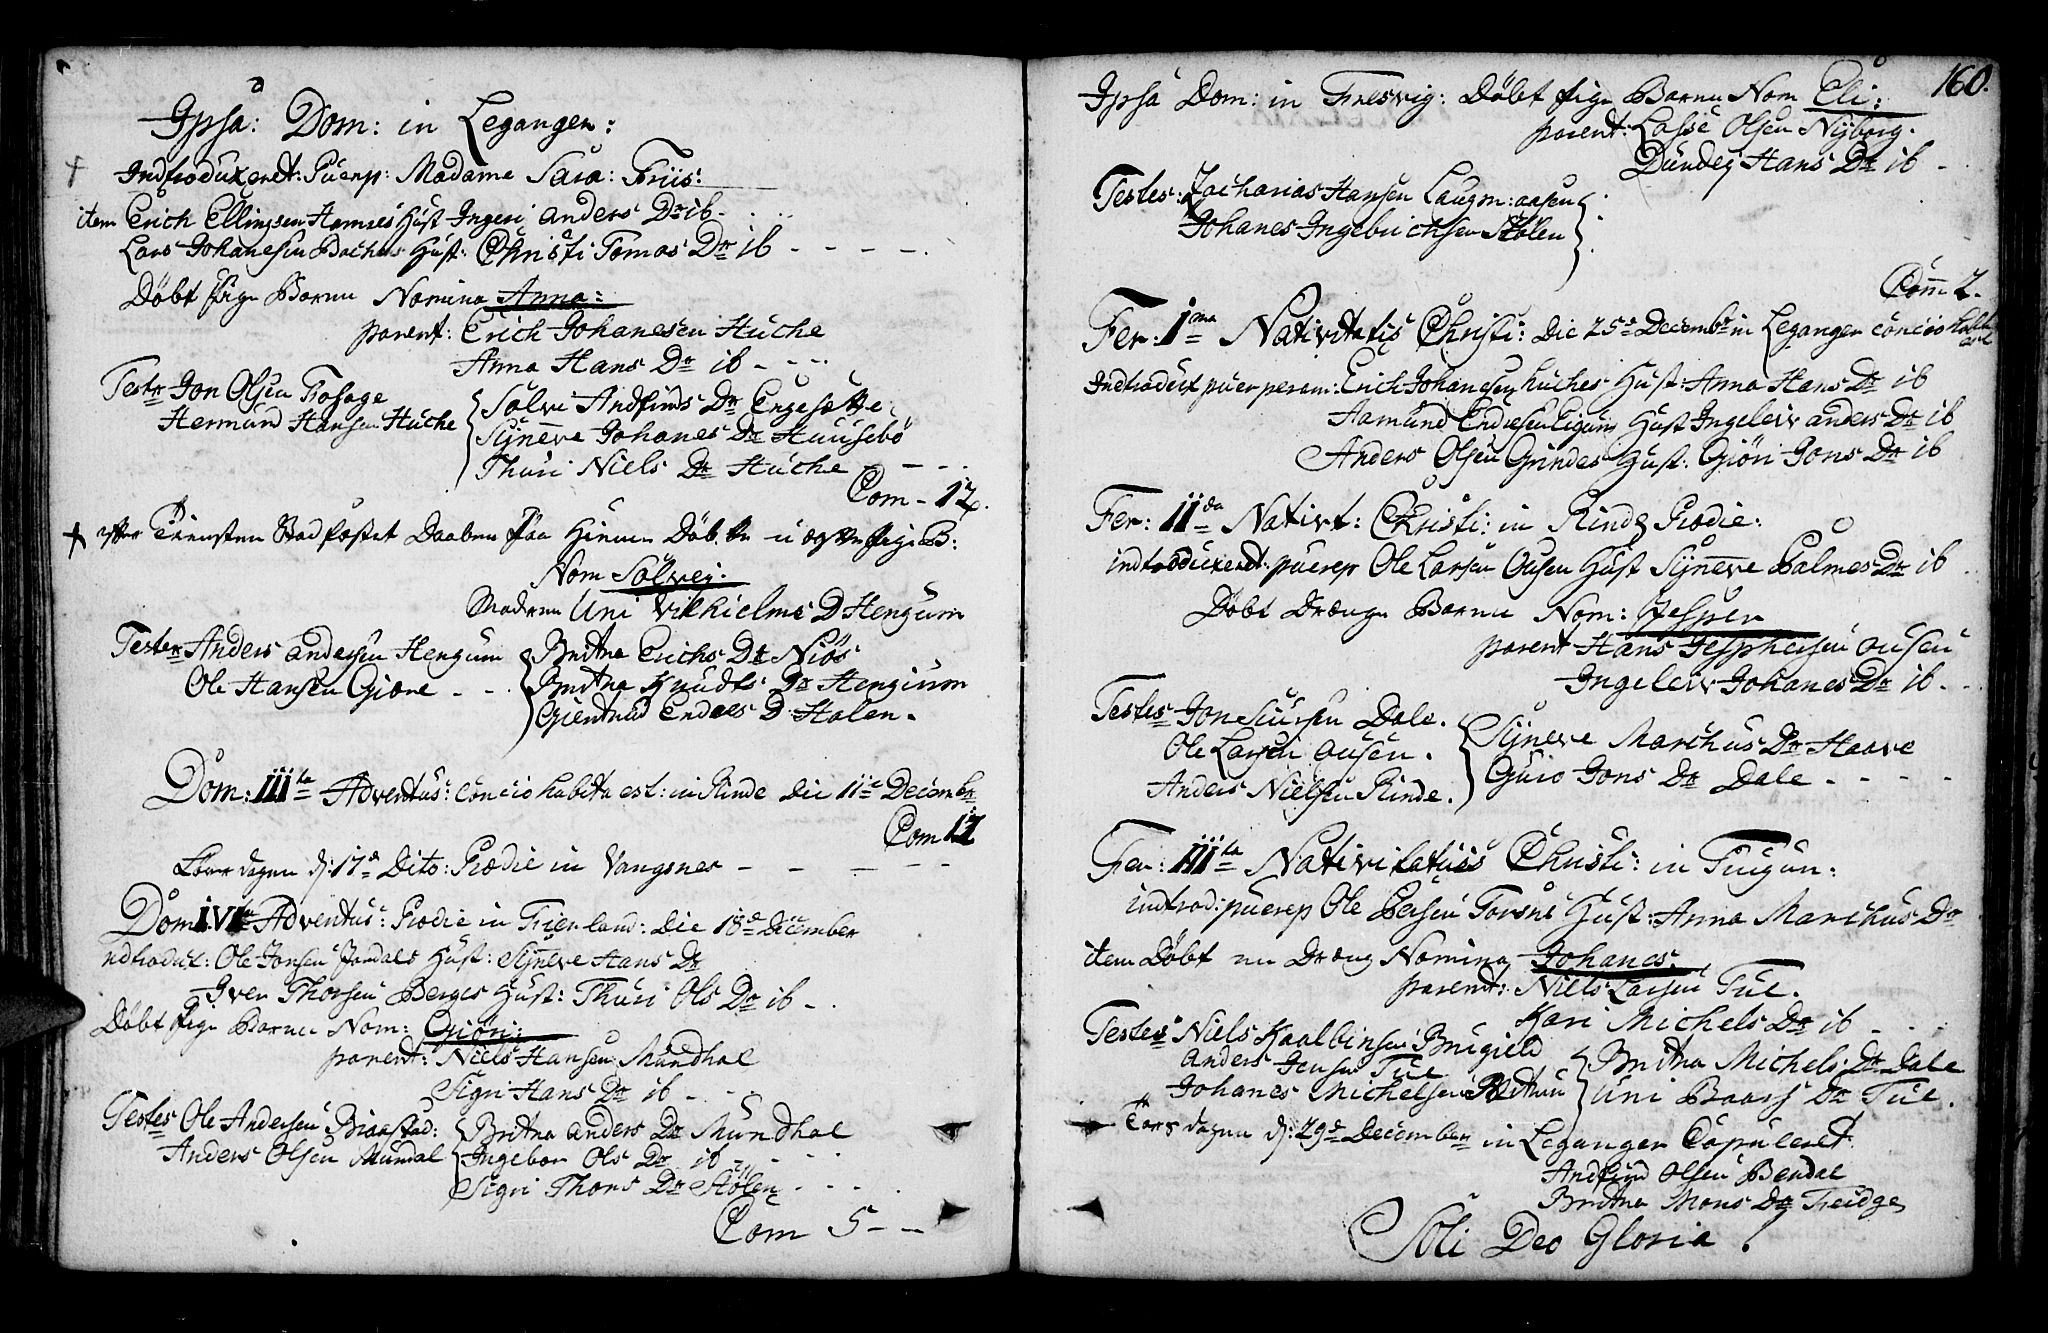 Ipsa: Dom: in Leganger:
Introduxeret: Puerp: Madame Sara: Friis:
item Erich Ellingsen Hamres Hust Ingeri Anders Dr ib - . .
Lars Johanesen Bachus Hust: Christi Tomas Dr ib - - - - .
Døbt Pige Barn Nomina Anna:
parent: Erich Johanesen Huche
Anna Hans Dr ib - - -
Test: Jon Olsen Fosage
Hermund Hansen Huche
Sølvi Andfinds Dr Engesætte
Sÿneve Johanes Dr Huusebö
Thuri Niels Dr Huche - - -
Com - 12.
efter Tienesten Stadfæstet Daaben paa Hiemme Døbte u ægte pige B:
Nom Sølvej.
Modren Uni Vilhielms D Hengum
Testes Anders Andersen Hengum
Ole Hansen Giøre - - .
Britha Erichs Dr Niøs
Britha Knudts Dr Hengium
Giertrud Endres D. Stalen.
Dom: IIItia Adventus: concio habita est: in Rinde die 11te Decembr
Com 12
Løverdagen d: 17de Dito: Prædie in Vangsnes - - - -
Dom: IVta Adventus: Prædie in Fierland: Die 18de December
Indtrodux: Ole Jonsen Jordals Hust: Sÿneve Hans Dr
Iver Thorsen Berges Hust: Thuri Ols Dr ib - .
Døbt Pige Barn Nom: Giöri:
parent: Niels Hansen Mundhal
Sigri Hans Dr ib - -
Testes Ole Andersen Biaastad:
Anders Olsen Mundal
Britha Anders Dr Mundhal
Ingebor Ols Dr ib - - - -
Sigri Thors Dr Stölen - - - .
Com 5 - -
160.
Ipsa Dom: in Fresvig: Døbt Pige Barn Nom Eli:
parent: Lasse Olsen Nÿborg.
Dundej Hans Dr ib -
Testes: Zacharias Hansen Laugmaasen
Johanes Ingebrichtsen Stølen
Com 2.
Fer: Ima Nativitatis Christi: die 25de Decembr in Leganger concio habita est
Indtrodux puerperam: Erich Johanesen Huches Hust: Anna Hans Dr ib
Aamund Endresen Eigum Hust Ingeleiv Anders Dr ib
Anders Olsen Grindes Hust: Giöri Jons Dr ib
Fer: IIda Nativit: Christi: in Rinde Prædie:
indtroduxeret: puerp Ole Larsen Ousen Hust Sÿneve Palmes Dr ib .
Døbt Drænge Barn Nom: Jesper
parent Hans Jesphersen Ousen
Ingeleiv Johanes Dr ib - . .
Testes Jon Siursen Dale.
Ole Larsen Ousen.
Anders Nielsen Rinde.
Sÿneve Marchus Dr Haave
Guro Jons Dr Dale - - - -
Fer: IIItia Nativitatiis Christi: in Tiugun:
indtrod: puerp Ole Persen Torsns Hust: Anna Marchus Dr
item Døbt en Dræng Nomina Johanes.
parent: Niels Larsen Tue.
Kari Michels Dr ib - - -
Testes Niels Kaalbiensen Brugield
Anders Jensen Tue
Johanes Michelsen
Britha Michels Dr Dale
Uni Baars Dr Tue.
Torsdagen d: 29de December in Leganger Copuleret
Andfind Olsen Bendal
Britha Mons Dr
Soli Deo Gloria!